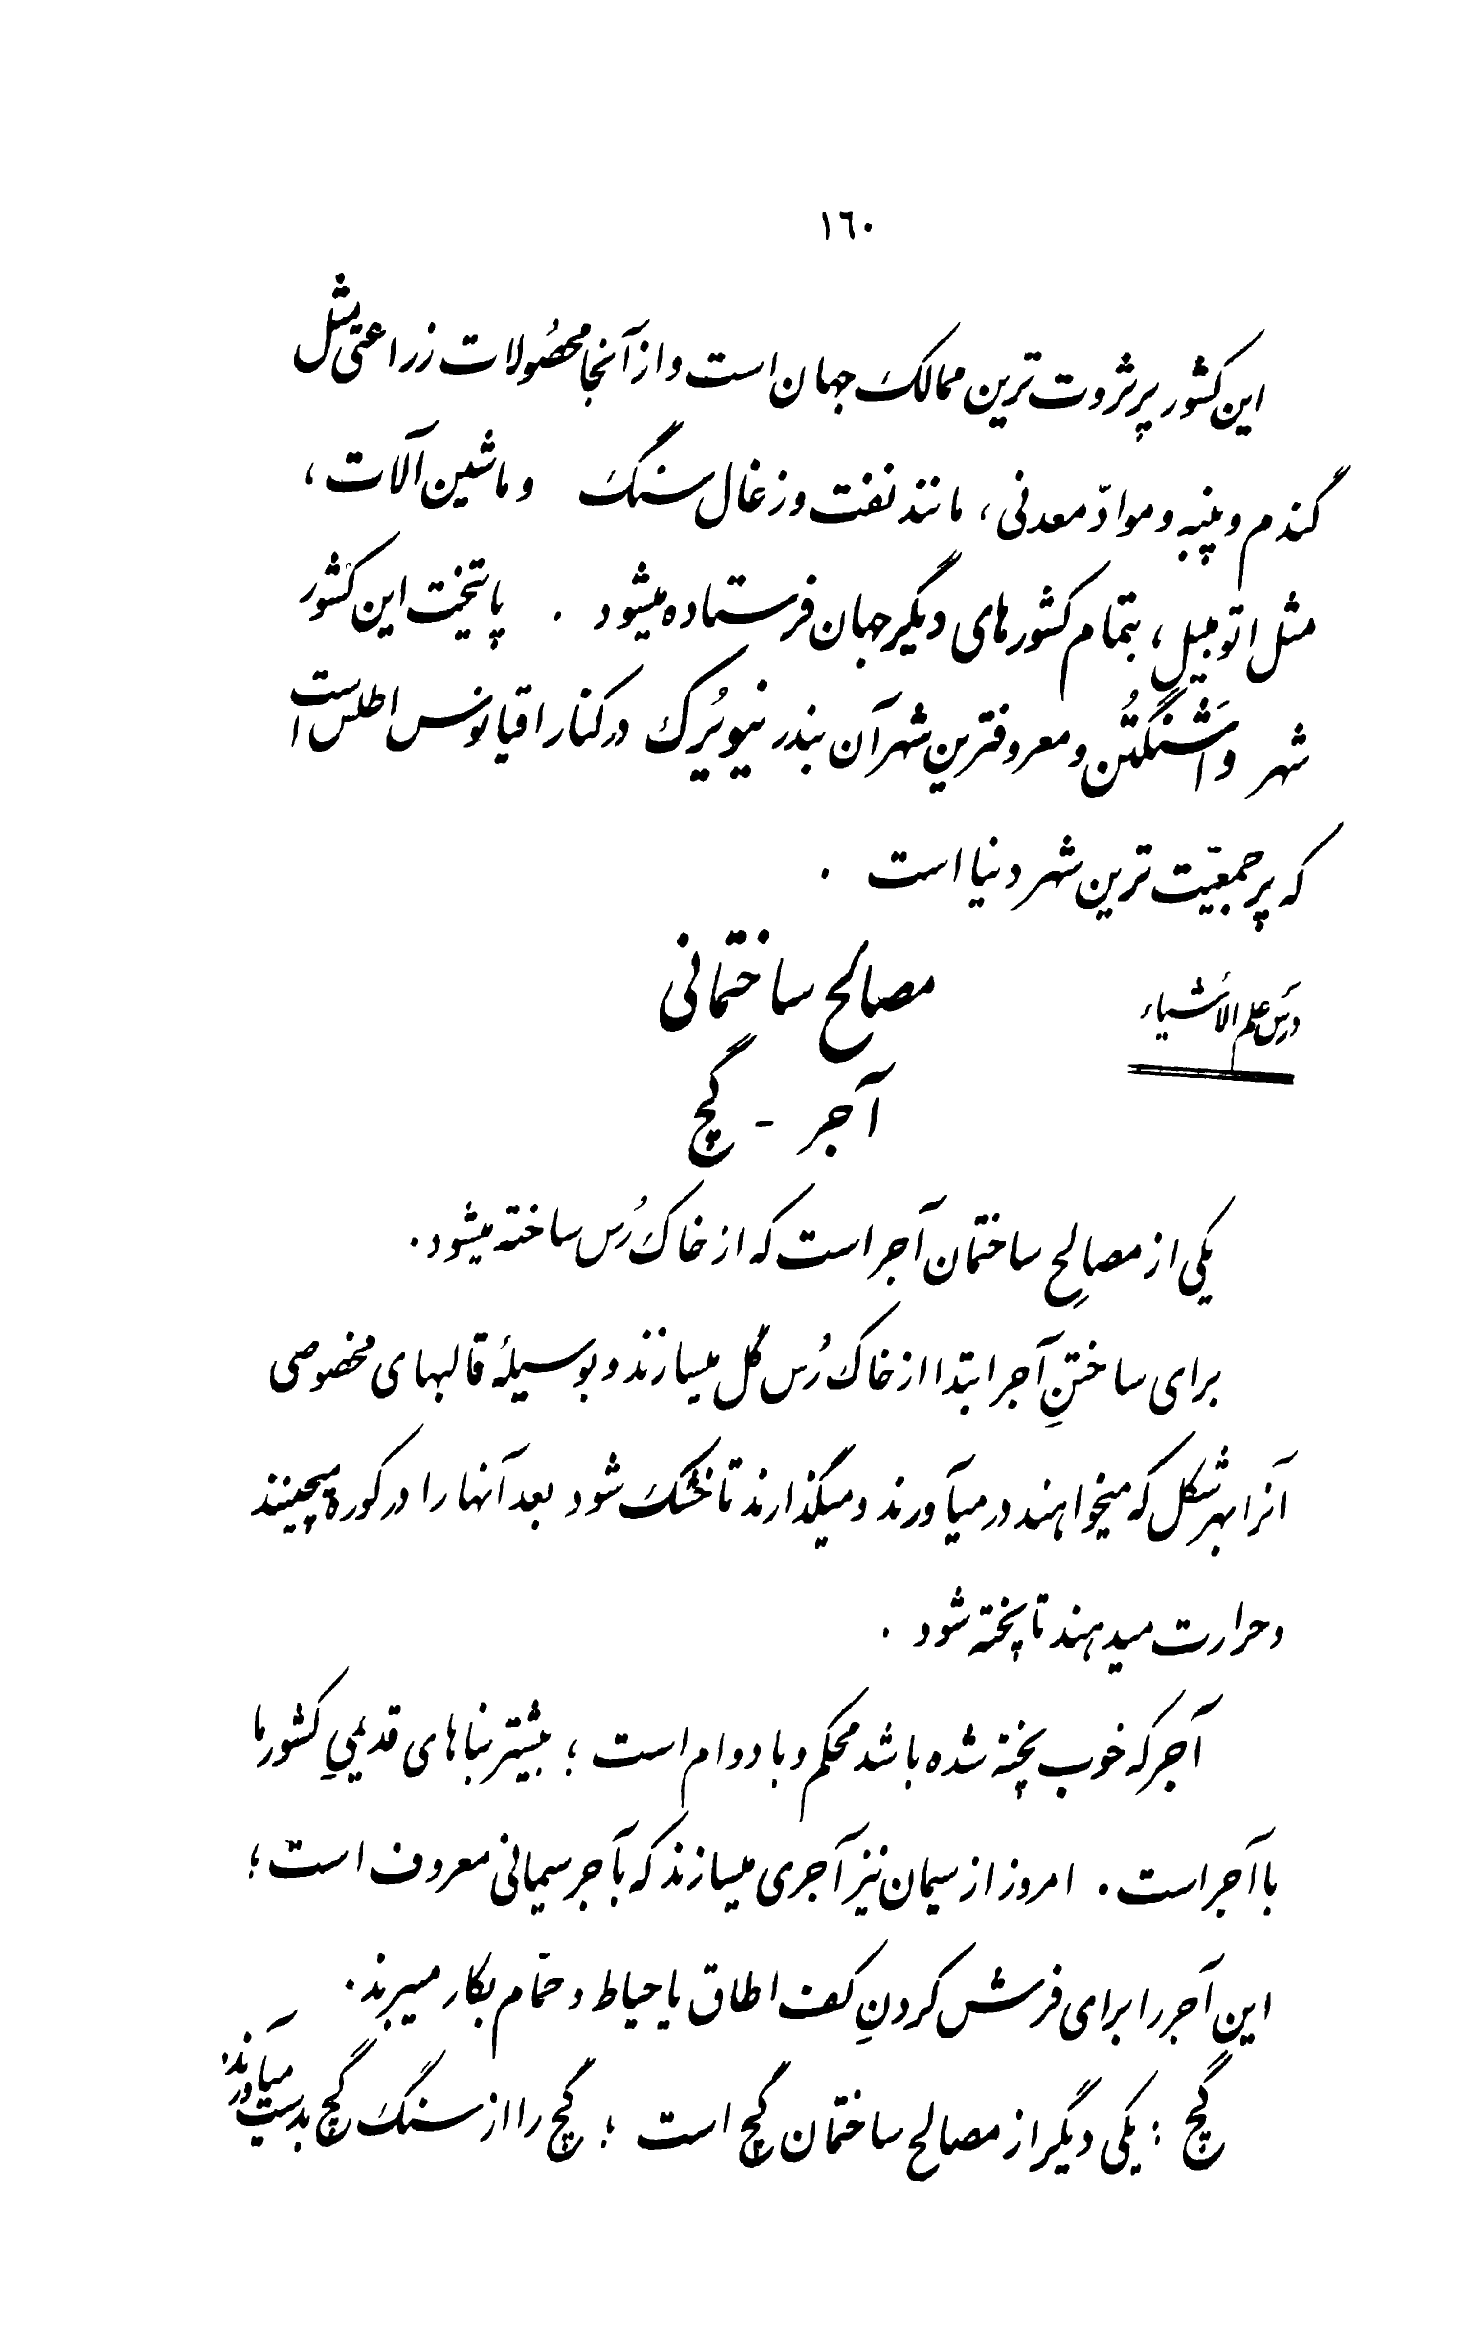 ١٦٠
این کشور پرثروت ترین ممالک جهان است و از آنجا محصُولات زراعتی مثل
گندم و پنبه و موادّ معدنی، مانند نفت و زغال سنگ و ماشین آلات،
مثل اتومبیل، بتمام کشورهای دیگر جهان فرستاده میشود . پایتخت این کشور
شهر واشَنگتُن و معروفترین شهر آن بندر نیویُرک در کنار اقیانوس اطلس است
که پرجمعیّت ترین شهر دنیا است .
درس علم الأشیاء
مصالح ساختمانی
آجر - گچ
یکی از مصالحِ ساختمان آجر است که از خاک رُس ساخته میشود.
برای ساختنِ آجر ابتدا از خاک رُس گل میسازند و بوسیلهٔ قالبهای مخصوصی
آنرا بهر شکل که میخواهند در میآورند و میگذارند تا خشک شود بعد آنها را در کوره میچینند
و حرارت میدهند تا پخته شود .
آجر که خوب پخته شده باشد محکم و با دوام است ؛ بیشتر بناهای قدیمیِ کشور ما
با آجر است . امروز از سیمان نیز آجری میسازند که بآجر سیمانی معروف است ؛
این آجر را برای فرش کردنِ کف اطاق یا حیاط و حمّام بکار میبرند.
گچ : یکی دیگر از مصالح ساختمان گچ است ؛ گچ را از سنگ گچ بدست میآورند.